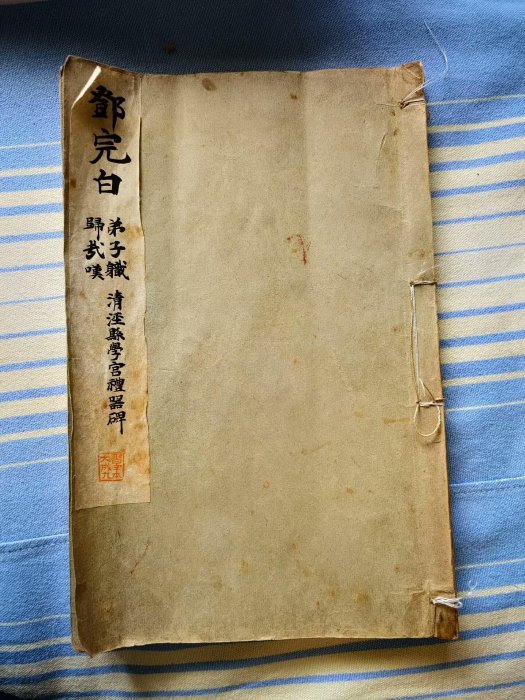 鄧完白
弟子職
歸去嘆
清涇縣學宮禮器碑